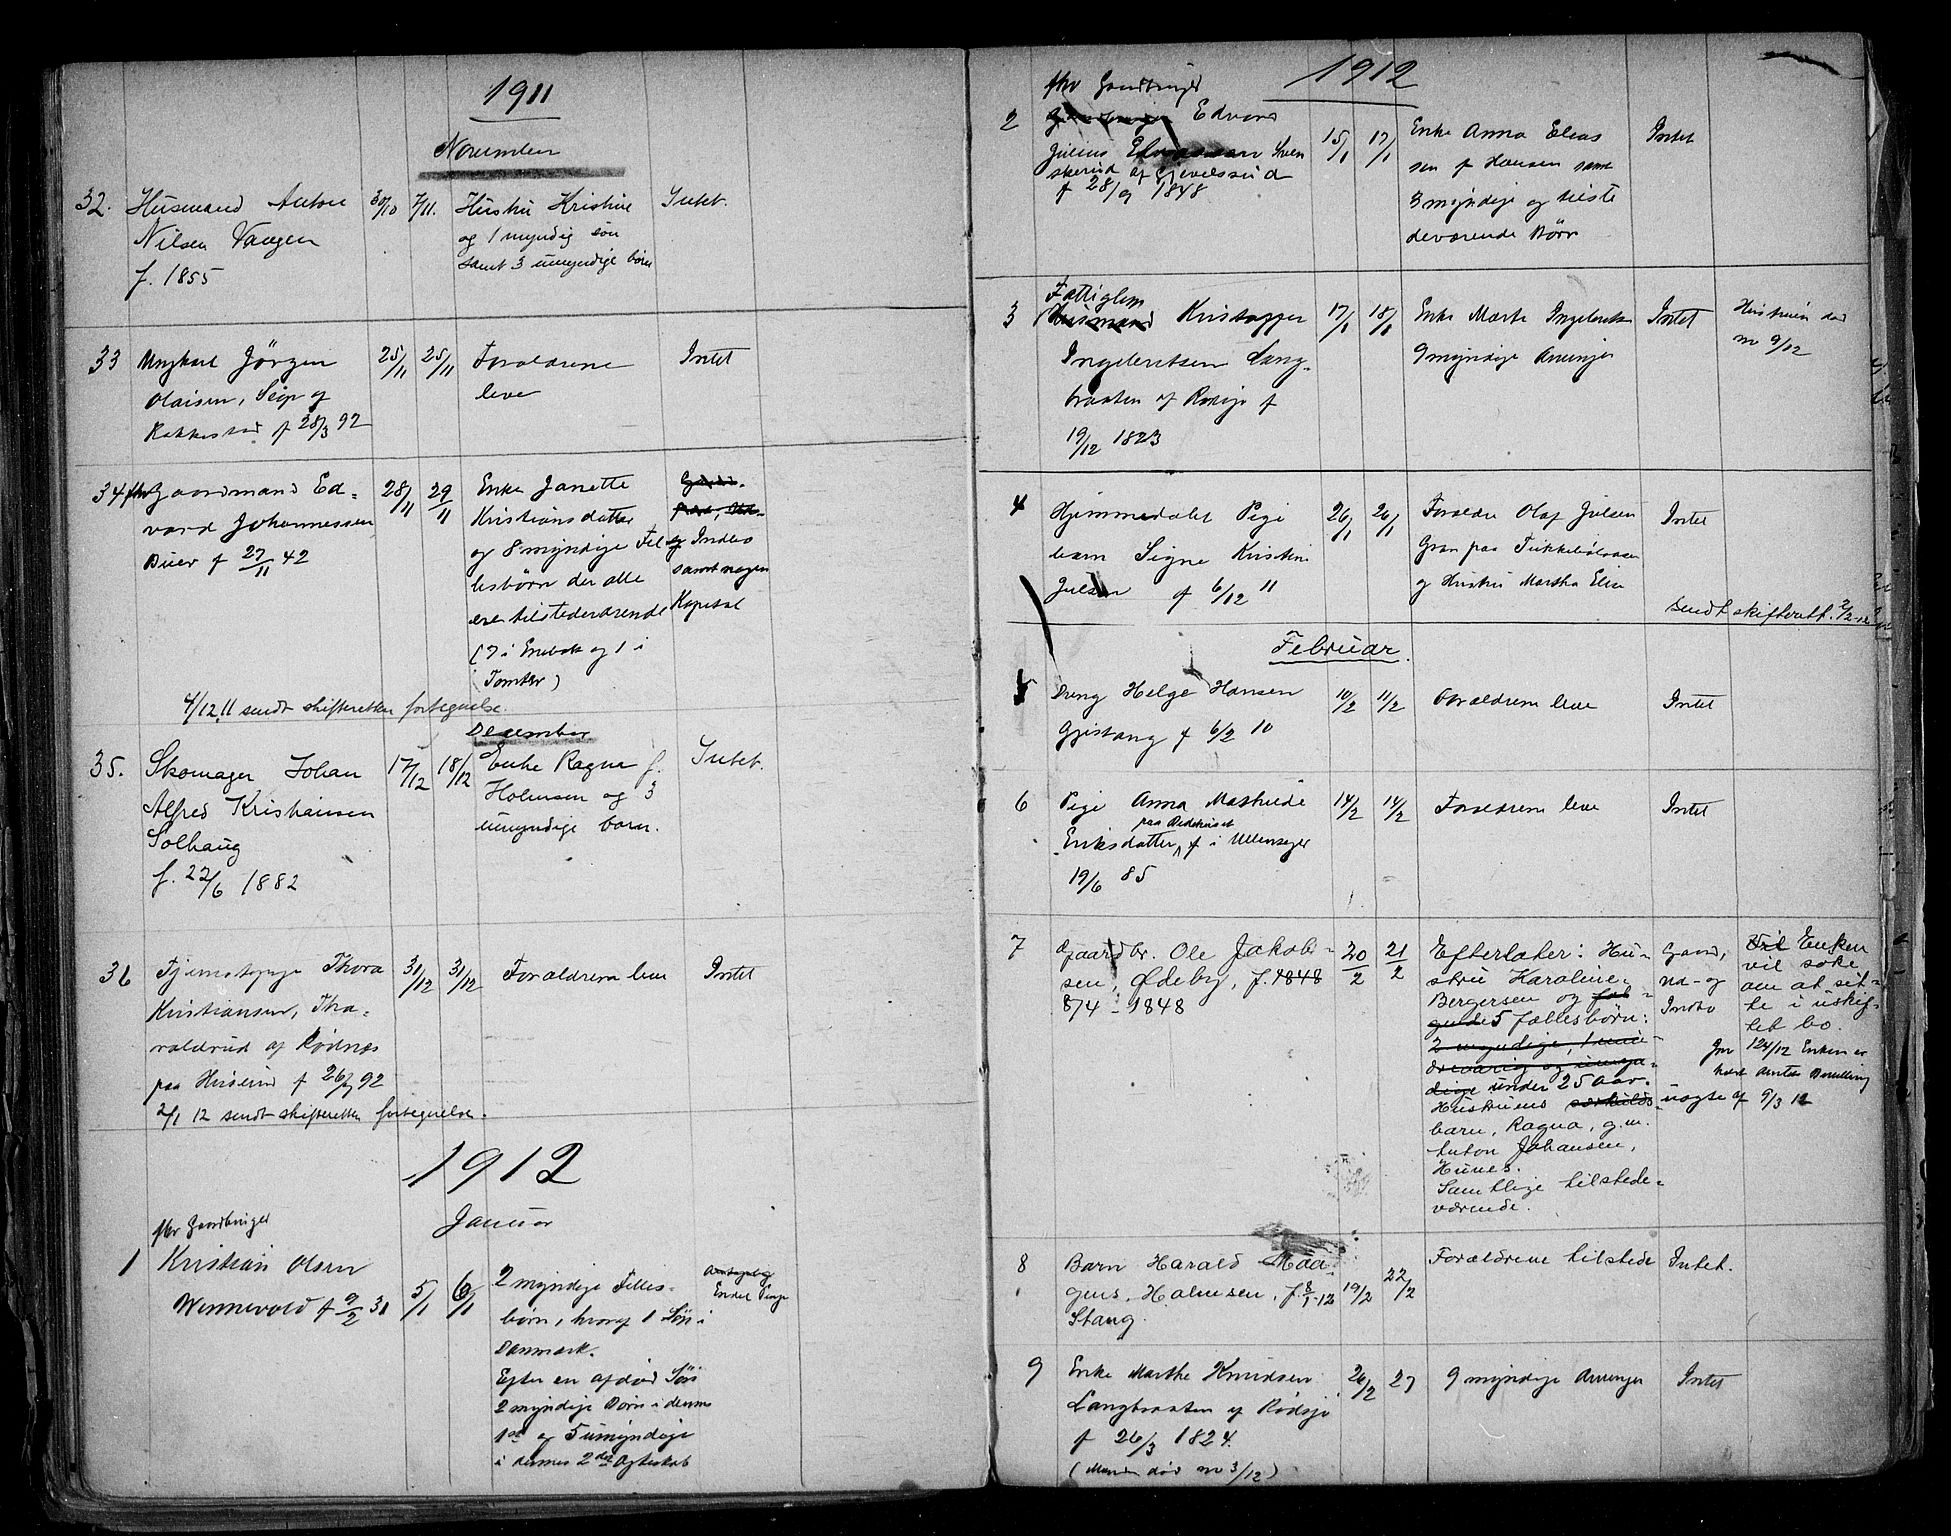 1911
November
32. Husmand Anton 30/10 7/11. Hustru Kristine Intet.
Nilsen Vangen og 1 myndig søn
f. 1855 samt 3 umyndige børn
33 Ungkarl Jörgen 25/11 25/11 Forældrene Intet
Olaisen, leve
Rakkestad f 28/3 92
34 fhv Gaardmand Ed= 28/11 29/11 Enke Janette
vard Johannessen Kristiansdatter
Buer f 27/11 42 og 8 myndige Fel og Indbo
lesbörn der alle samt nogen
ere tilstedeværende Kapital
(7 i Enebak og 1 i
Tomter)
4/12 11 sendt skifteretten fortegnelse.
December
35. Skomager Johan 17/12 18/12 Enke Ragna f. Intet.
Alfred Kristiansen Holmsen og 3
Solhaug umyndige barn.
f. 22/6 1882
36 Tjenestepige Thora 31/12 31/12 Forældrene leve Intet
Kristiansen, Tha=
raldrud af Rödnæs
paa f 26/7 92
2/1 12 sendt skifteretten fortegnelse.
1912
Januar
fhv Gaardbruger
1 Kristian Olsen 5/1 6/1 2 myndige Felles=
Wennevold f 9/2 31 börn, hvoraf 1 Sön i
Danmark.
Efter en afdød Sön
2 myndige Börn i dennes
1ste og 5 umyndige
i dennes 2det Ægteskab
1912
fhv Gaardbruger
2 Edvard 15/1 17/1 Enke Anna Elias Intet
Julius sen f Hansen samt
f 28/9 1848 3 myndige og tilste
deværende Börn
Fattiglem
3 Husmand Kristoffer 17/1 18/1 Enke Marte Ingebretsen Intet Hustruen död
Ingebretsen Lang= 9 myndige Arvinger no 9/12
braaten af Rödsjö f
19/12 1823
4 Hjemmedøbt Pige 26/1 26/1 Forældre Olaf Julsen Intet
barn Signe Kristine Gran paa
Julsen f 6/12 11 og Hustru Martha Elise
sendt skifterett. 2/2-12
Februar.
5 Dreng Helge Hansen 10/2 11/2 Forældrene leve Intet
Gjestang f 6/2 10
6 Pige Anna Mathilde 14/2 14/2 Forældrene leve Intet
paa Bedehuset
Eriksdatter, f i Ullensager
19/6 85
7 Gaardbr. Ole Jakob= 20/2 21/2 Efterlater: Hu= Gaard, Enken
sen, Ødeby, f. 1848 stru Karoline Ud- og vil søke
8/4 - 1848 Bergersen og Indbo om at sit=
5 fællesbörn: te i uskif
2 myndige, 1 min= tet bo.
dreaarig og umyn= Jnr 124/12 Enken er
dige under 25 aar. Amtets Bevilling
Hustruens særkulds= af 9/3 12
barn, Ragna, g.m.
Anton Johansen,
Hunes.
Samtlige tilstede=
værende.
8 Barn Harald Maa= 19/2 22/2 Forældrene tilstede Intet.
gens. Holmsen, f. 8/1-12
Stang.
9 Enke Marthe Knudsen 26/2 27 9 myndige Arvinger Intet
Langbraaten af Rödsjö
f 26/3 1824.
(Manden död no 3/12)